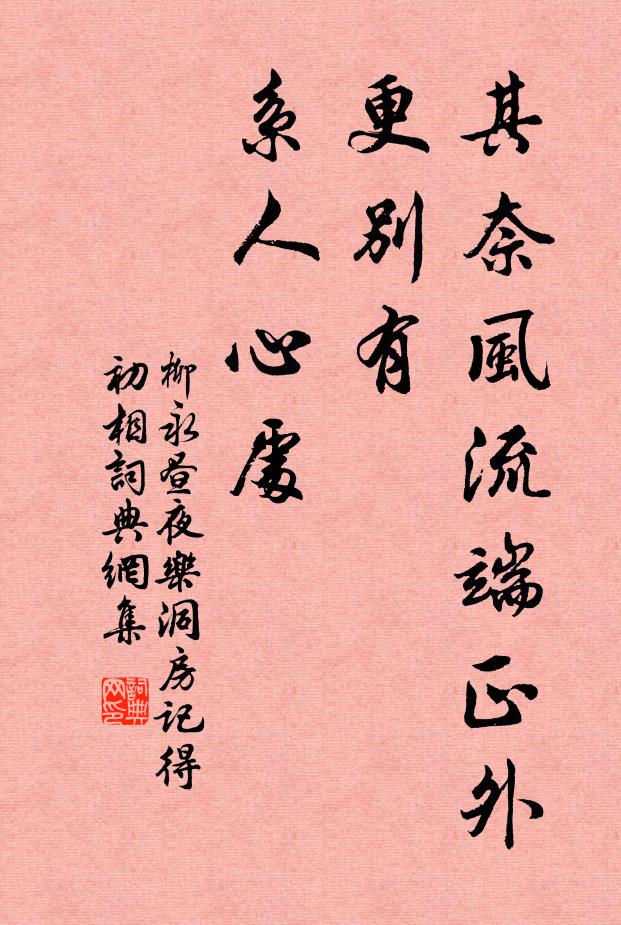 其奈風流端正外
更別有
系人心處
柳永晝夜樂洞房記得
初相詞典網集
詞典
网印